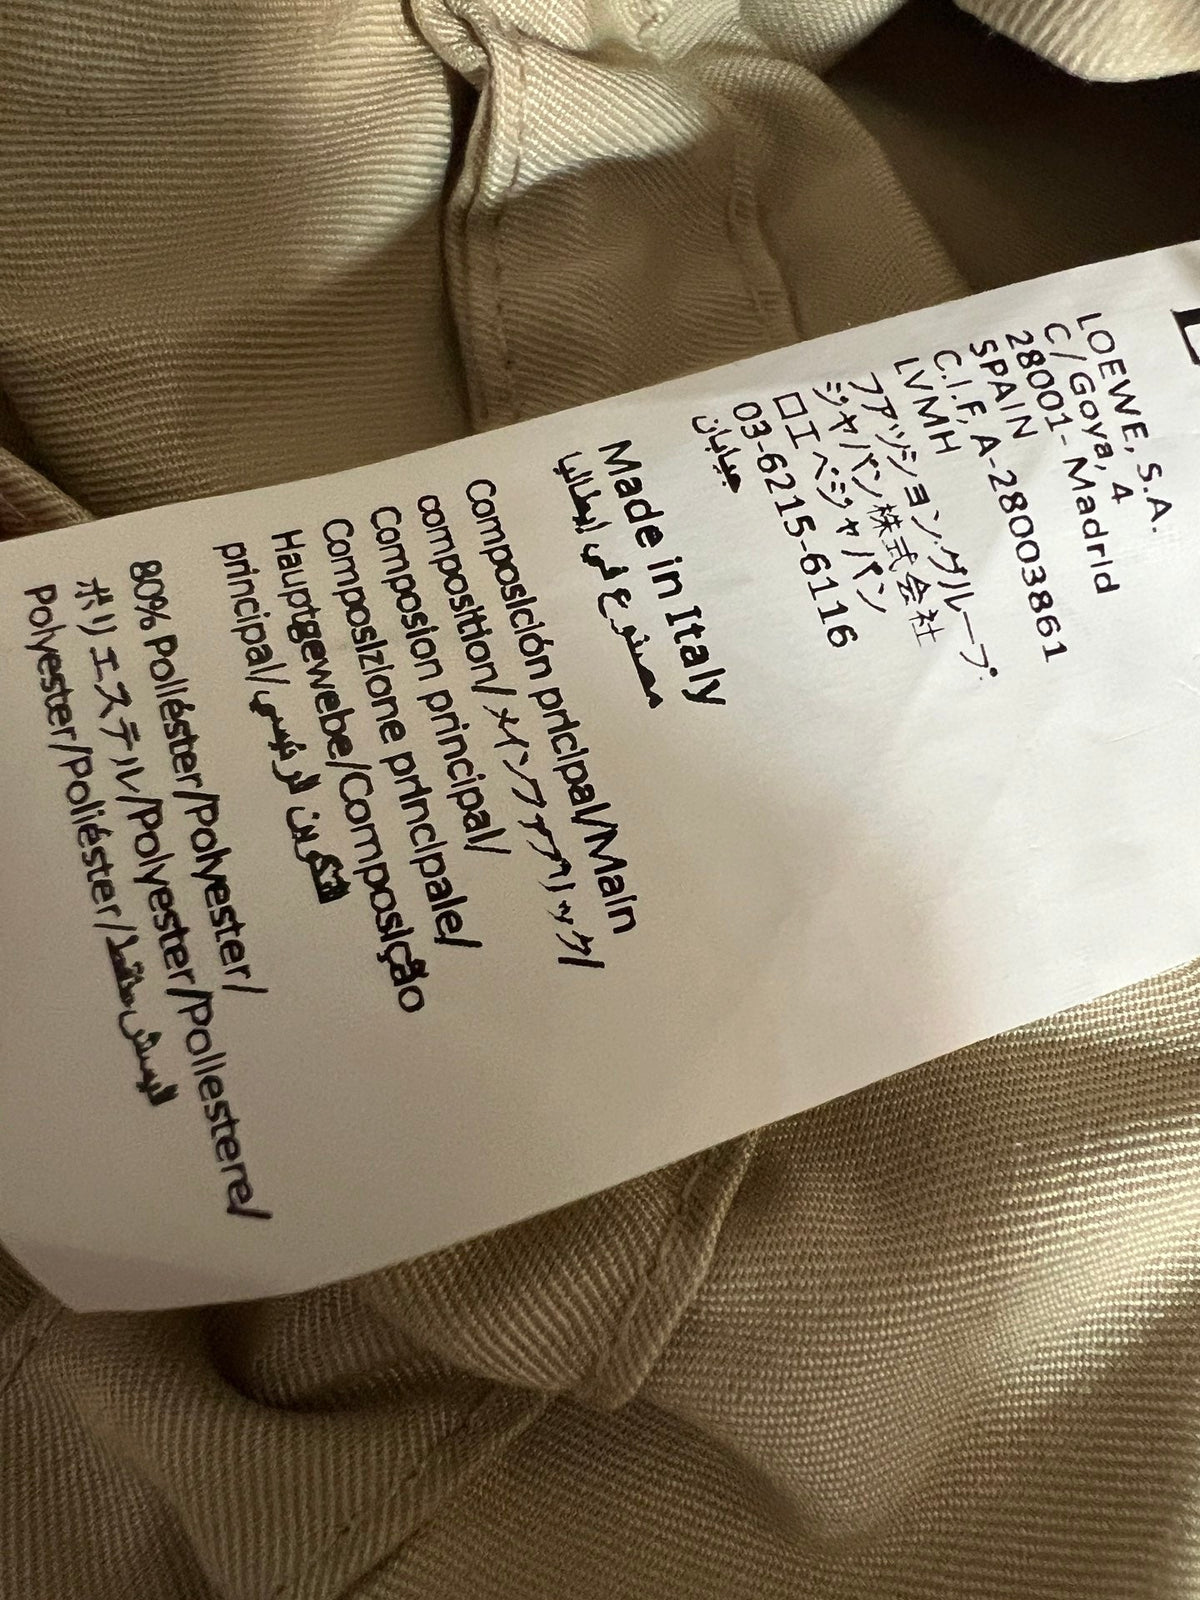 LOEWE, S.A.
C/Goya, 4
28001-Madrid
SPAIN
C.I.F. A-28003861
LVMH
ファッショングループ
ジャパン株式会社
ロエベジャパン
03-6215-6116
جابان
Made in Italy
مصنوع في إيطاليا
Composición pricipal/Main
composition/メインファブリック/
Composion principal/
Composizione principale/
Hauptgewebe/Composição
principal/
80% Poliéster/Polyester/
ポリエステル/Polyester/Poliestere/
Polyester/Poliéster/